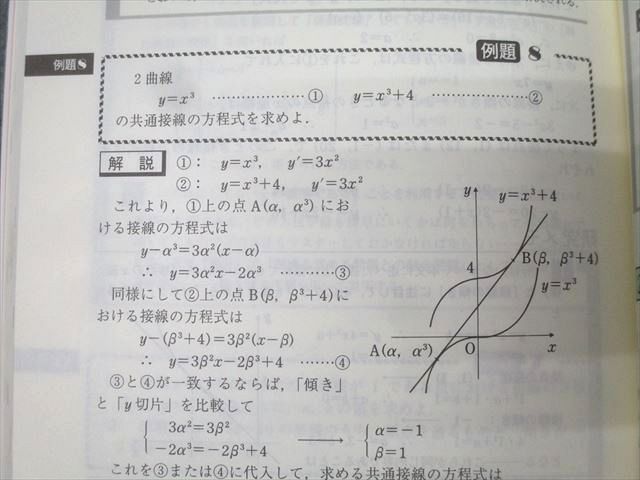 例題8
例題 8
2曲線
y=x³ ………………① y=x³+4 ………………②
の共通接線の方程式を求めよ.
解 説 ①: y=x³, y′=3x²
②: y=x³+4, y′=3x²
これより, ①上の点A(α, α³)にお
ける接線の方程式は
y−α³=3α²(x−α)
∴ y=3α²x−2α³ …………③
同様にして②上の点B(β, β³+4)に
おける接線の方程式は
y−(β³+4)=3β²(x−β)
∴ y=3β²x−2β³+4 ………④
③と④が一致するならば,「傾き」
と「y切片」を比較して
3α²=3β²
−2α³=−2β³+4
→
α=−1
β=1
これを③または④に代入して, 求める共通接線の方程式は
y
y=x³+4
4
B(β, β³+4)
y=x³
O
x
A(α, α³)